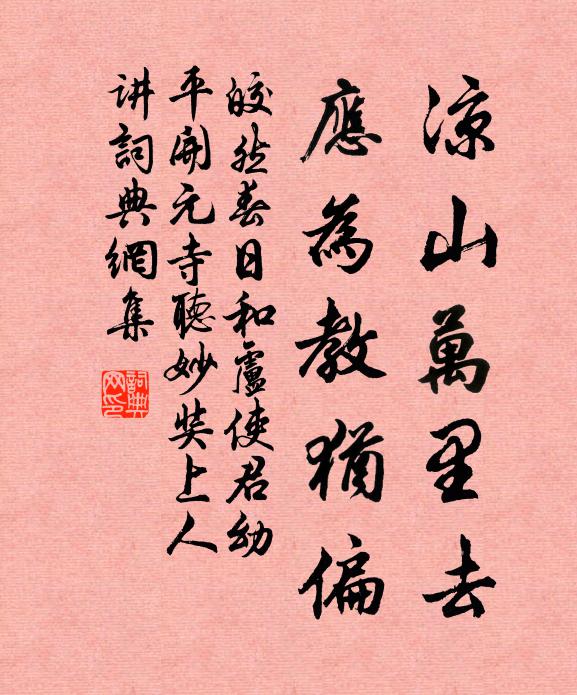 涼山萬里去
應為教猶偏
皎然春日和盧使君幼
平開元寺聽妙奘上人
讲詞典網集
詞典
网印